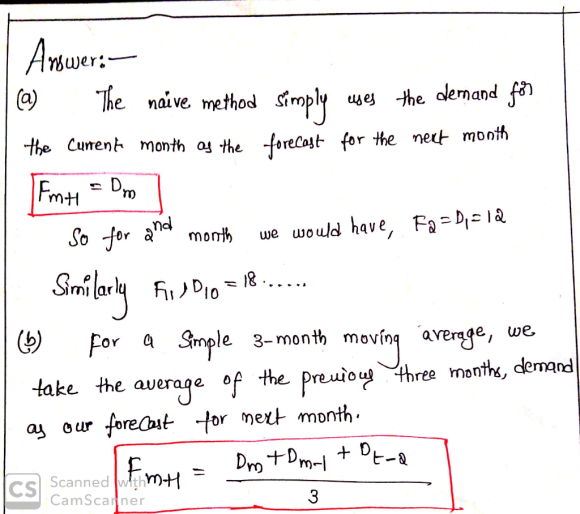 Answer:—
(a) The naive method simply uses the demand for
the Current month as the forecast for the next month
Fm+1 = Dm
So for 2nd month we would have, F2 = D1 = 12
Similarly F11, D10 = 18 ......
(b) For a Simple 3-month moving average, we
take the average of the previous three months, demand
as our foreCast for next month.
Fm+1 = Dm + Dm-1 + Dt-2
3
CS Scanned with
CamScanner